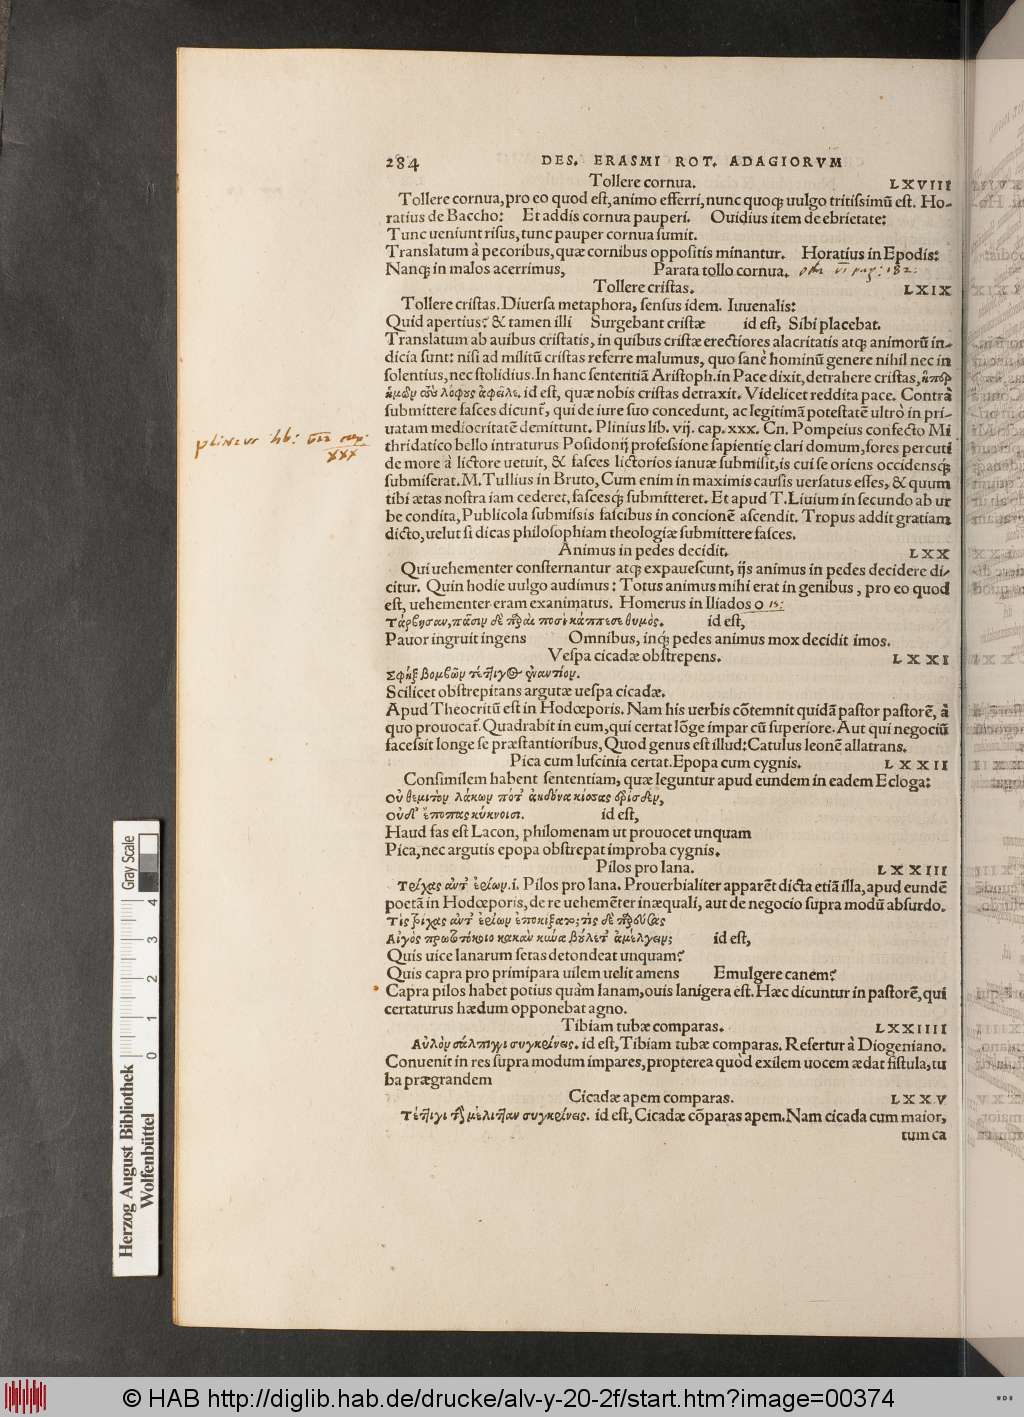 284 DES. ERASMI ROT. ADAGIORVM
Tollere cornua. LXVIII
Tollere cornua, pro eo quod est, animo efferri, nunc quoq; uulgo tritissimũ est. Ho-
ratius de Baccho: Et addis cornua pauperi. Ouidius item de ebrietate:
Tunc ueniunt risus, tunc pauper cornua sumit.
Translatum à pecoribus, quæ cornibus oppositis minantur. Horatius in Epodis:
Nanq; in malos acerrimus, Parata tollo cornua.
Tollere cristas. LXIX
Tollere cristas. Diuersa metaphora, sensus idem. Iuuenalis:
Quid apertius? & tamen illi Surgebant cristæ id est, Sibi placebat.
Translatum ab auibus cristatis, in quibus cristæ erectiores alacritatis atq; animorũ in-
dicia sunt: nisi ad militũ cristas referre malumus, quo sanè hominũ genere nihil nec in
solentius, nec stolidius. In hanc sententiã Aristoph. in Pace dixit, detrahere cristas, ἥπερ
ἡμῶν τοὺς λόφους ἀφεῖλε. id est, quæ nobis cristas detraxit. Videlicet reddita pace. Contrà
submittere fasces dicunt̃, qui de iure suo concedunt, ac legitimã potestatẽ ultrò in pri-
uatam mediocritatẽ demittunt. Plinius lib. vij. cap. xxx. Cn. Pompeius confecto Mi
thridatico bello intraturus Posidonij professione sapientię clari domum, fores percuti
de more à lictore uetuit, & fasces lictorios ianuæ submisit, is cui se oriens occidensq́;
submiserat. M. Tullius in Bruto, Cum enim in maximis causis uersatus esses, & quum
tibi ætas nostra iam cederet, fascesq́; submitteret. Et apud T. Liuium in secundo ab ur
be condita, Publicola submissis fascibus in concionẽ ascendit. Tropus addit gratiam
dicto, uelut si dicas philosophiam theologiæ submittere fasces.
plinius lib: VII cap:
XXX
Animus in pedes decidit. LXX
Qui uehementer consternantur atq; expauescunt, ijs animus in pedes decidere di-
citur. Quin hodie uulgo audimus: Totus animus mihi erat in genibus, pro eo quod
est, uehementer eram exanimatus. Homerus in Iliados ο 15:
Τάρβησαν, πᾶσιν δὲ παραὶ ποσὶ κάππεσε θυμός. id est,
Pauor ingruit ingens Omnibus, inq; pedes animus mox decidit imos.
Vespa cicadæ obstrepens. LXXI
Σφὴξ βομβῶν τέττιγος ἐναντίον.
Scilicet obstrepitans argutæ uespa cicadæ.
Apud Theocritũ est in Hodœporis. Nam his uerbis cõtemnit quidã pastor pastorẽ, à
quo prouocat̃. Quadrabit in eum, qui certat lõge impar cũ superiore. Aut qui negociũ
facessit longe se præstantioribus, Quod genus est illud: Catulus leonẽ allatrans.
Pica cum luscinia certat. Epopa cum cygnis. LXXII
Consimilem habent sententiam, quæ leguntur apud eundem in eadem Ecloga:
Οὐ θεμιτὸν λάκων ποτ' ἀηδόνα κίσσας ἐρίσδεν,
Οὐδ' ἔποπας κύκνοισι. id est,
Haud fas est Lacon, philomenam ut prouocet unquam
Pica, nec argutis epopa obstrepat improba cygnis.
Pilos pro lana. LXXIII
Τρίχας ἀντ' ἐρίων. i. Pilos pro lana. Prouerbialiter apparẽt dicta etiã illa, apud eundẽ
poetã in Hodœporis, de re uehemẽter inæquali, aut de negocio supra modũ absurdo.
Τίς τρίχας ἀντ' ἐρίων ἐποκίξατο; τίς δὲ παρεύσας
Αἰγὸς πρωτοτόκοιο κακὰν κύνα δήλετ' ἀμέλγειν; id est,
Quis uice lanarum setas detondeat unquam?
Quis capra pro primipara uilem uelit amens Emulgere canem?
Capra pilos habet potius quàm lanam, ouis lanigera est. Hæc dicuntur in pastorẽ, qui
certaturus hædum opponebat agno.
Tibiam tubæ comparas. LXXIIII
Αὐλὸν σάλπιγγι συγκρίνεις. id est, Tibiam tubæ comparas. Refertur à Diogeniano.
Conuenit in res supra modum impares, propterea quòd exilem uocem ædat fistula, tu
ba prægrandem
Cicadæ apem comparas. LXXV
Τέττιγι τὴν μέλιτταν συγκρίνεις. id est, Cicadæ cõparas apem. Nam cicada cum maior,
tum ca
Gray Scale
0 1 2 3 4
Herzog August Bibliothek
Wolfenbüttel
© HAB http://diglib.hab.de/drucke/alv-y-20-2f/start.htm?image=00374